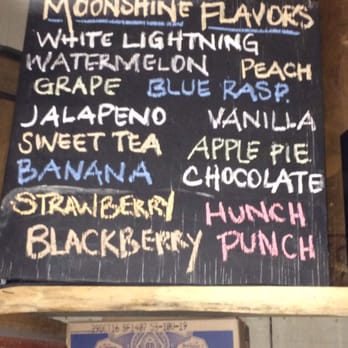 MOONSHINE FLAVORS
WHITE LIGHTNING
WATERMELON PEACH
GRAPE BLUE RASP.
JALAPENO VANILLA
SWEET TEA APPLE PIE
BANANA CHOCOLATE
STRAWBERRY HUNCH
BLACKBERRY PUNCH